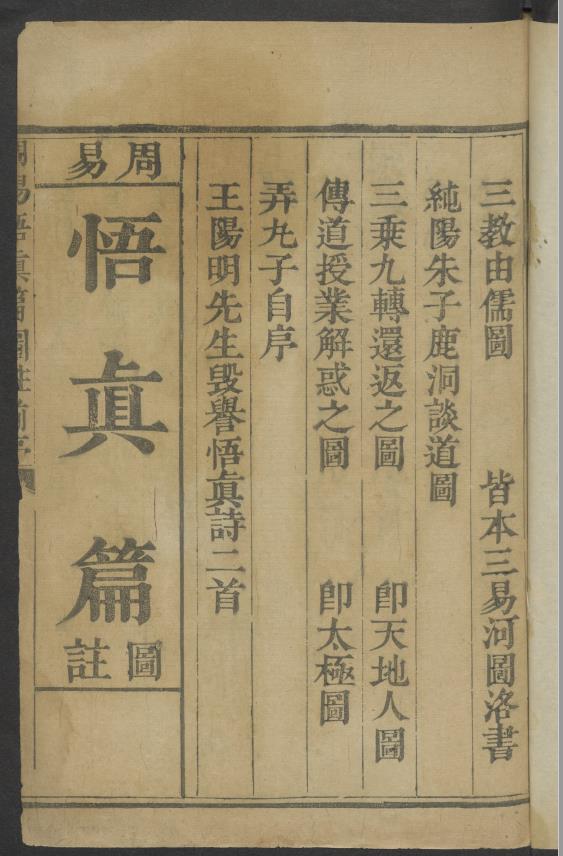 三教由儒圖　　皆本三易河圖洛書
純陽朱子鹿洞談道圖
三乘九轉還返之圖　　即天地人圖
傳道授業解惑之圖　　即太極圖
弄丸子自序
王陽明先生毀譽悟眞詩二首
周易
悟眞篇
圖註